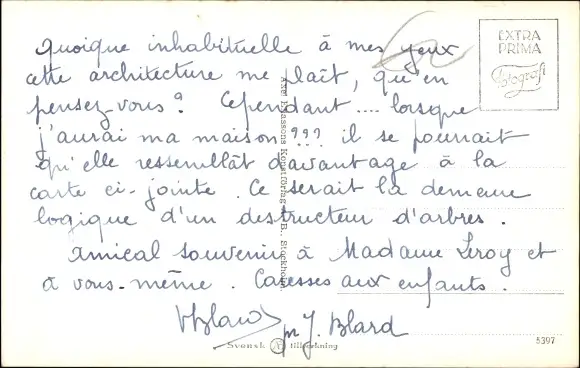 Quoique inhabituelle à mes yeux
cette architecture me plaît, qu'en
pensez-vous? Cependant .... lorsque
j'aurai ma maison??? il se pourrait
qu'elle ressemblât davantage à la
carte ci-jointe. Ce serait la demeure
logique d'un destructeur d'arbres.
Amical souvenir à Madame Leroy et
à vous-même. Caresses aux enfants.
pr J. Blard
EXTRA
PRIMA
Fotografi
Axel Eliassons Konstförlag A.B., Stockholm.
Svensk tillverkning
5397